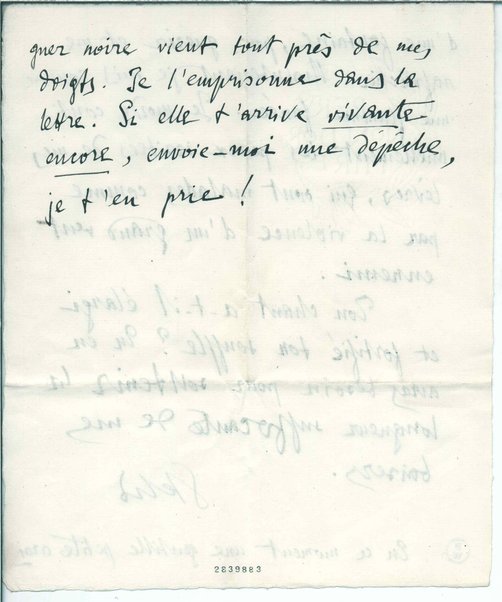 gner noire vient tout près de mes
doigts. Je l'emprisonne dans la
lettre. Si elle t'arrive vivante
encore, envoie-moi une dépêche,
je t'en prie !
2839883